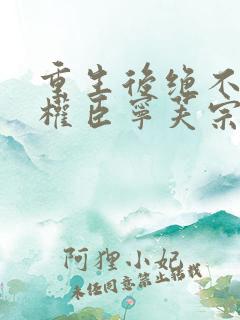 重生後绝不
權臣寧芙宗
阿狸小妃
未经同意禁止转载